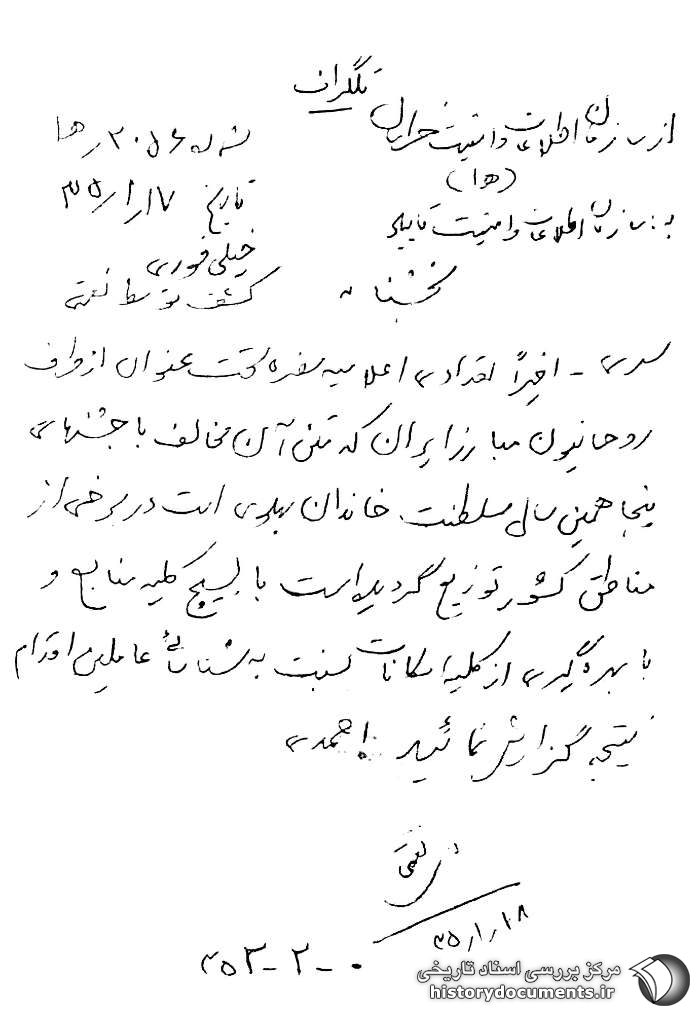 تلگراف
از سازمان اطلاعات و امنیت خراسان
شماره ۲۰۵۶ ر ها
(ها)
تاریخ ۱۷ ر ۱ ر ۳۵
به: سازمان اطلاعات و امنیت تایباد
خیلی فوری
بخشنامه
کشف توسط نعمتی
سری - اخیراً تعدادی اعلامیه مضره تحت عنوان از طرف
روحانیون مبارز ایران که متن آن مخالف با جشنهای
پنجاهمین سال سلطنت خاندان پهلوی است در برخی از
مناطق کشور توزیع گردیده است با بسیج کلیه منابع و
با بهره‌گیری از کلیه امکانات نسبت به شناسائی عاملین اقدام
نتیجه گزارش نمائید احمدی
۳۵ ر ۱ ر ۱۸
۴۵۳ - ۲ - ۰
مرکز بررسی اسناد تاریخی
historydocuments.ir